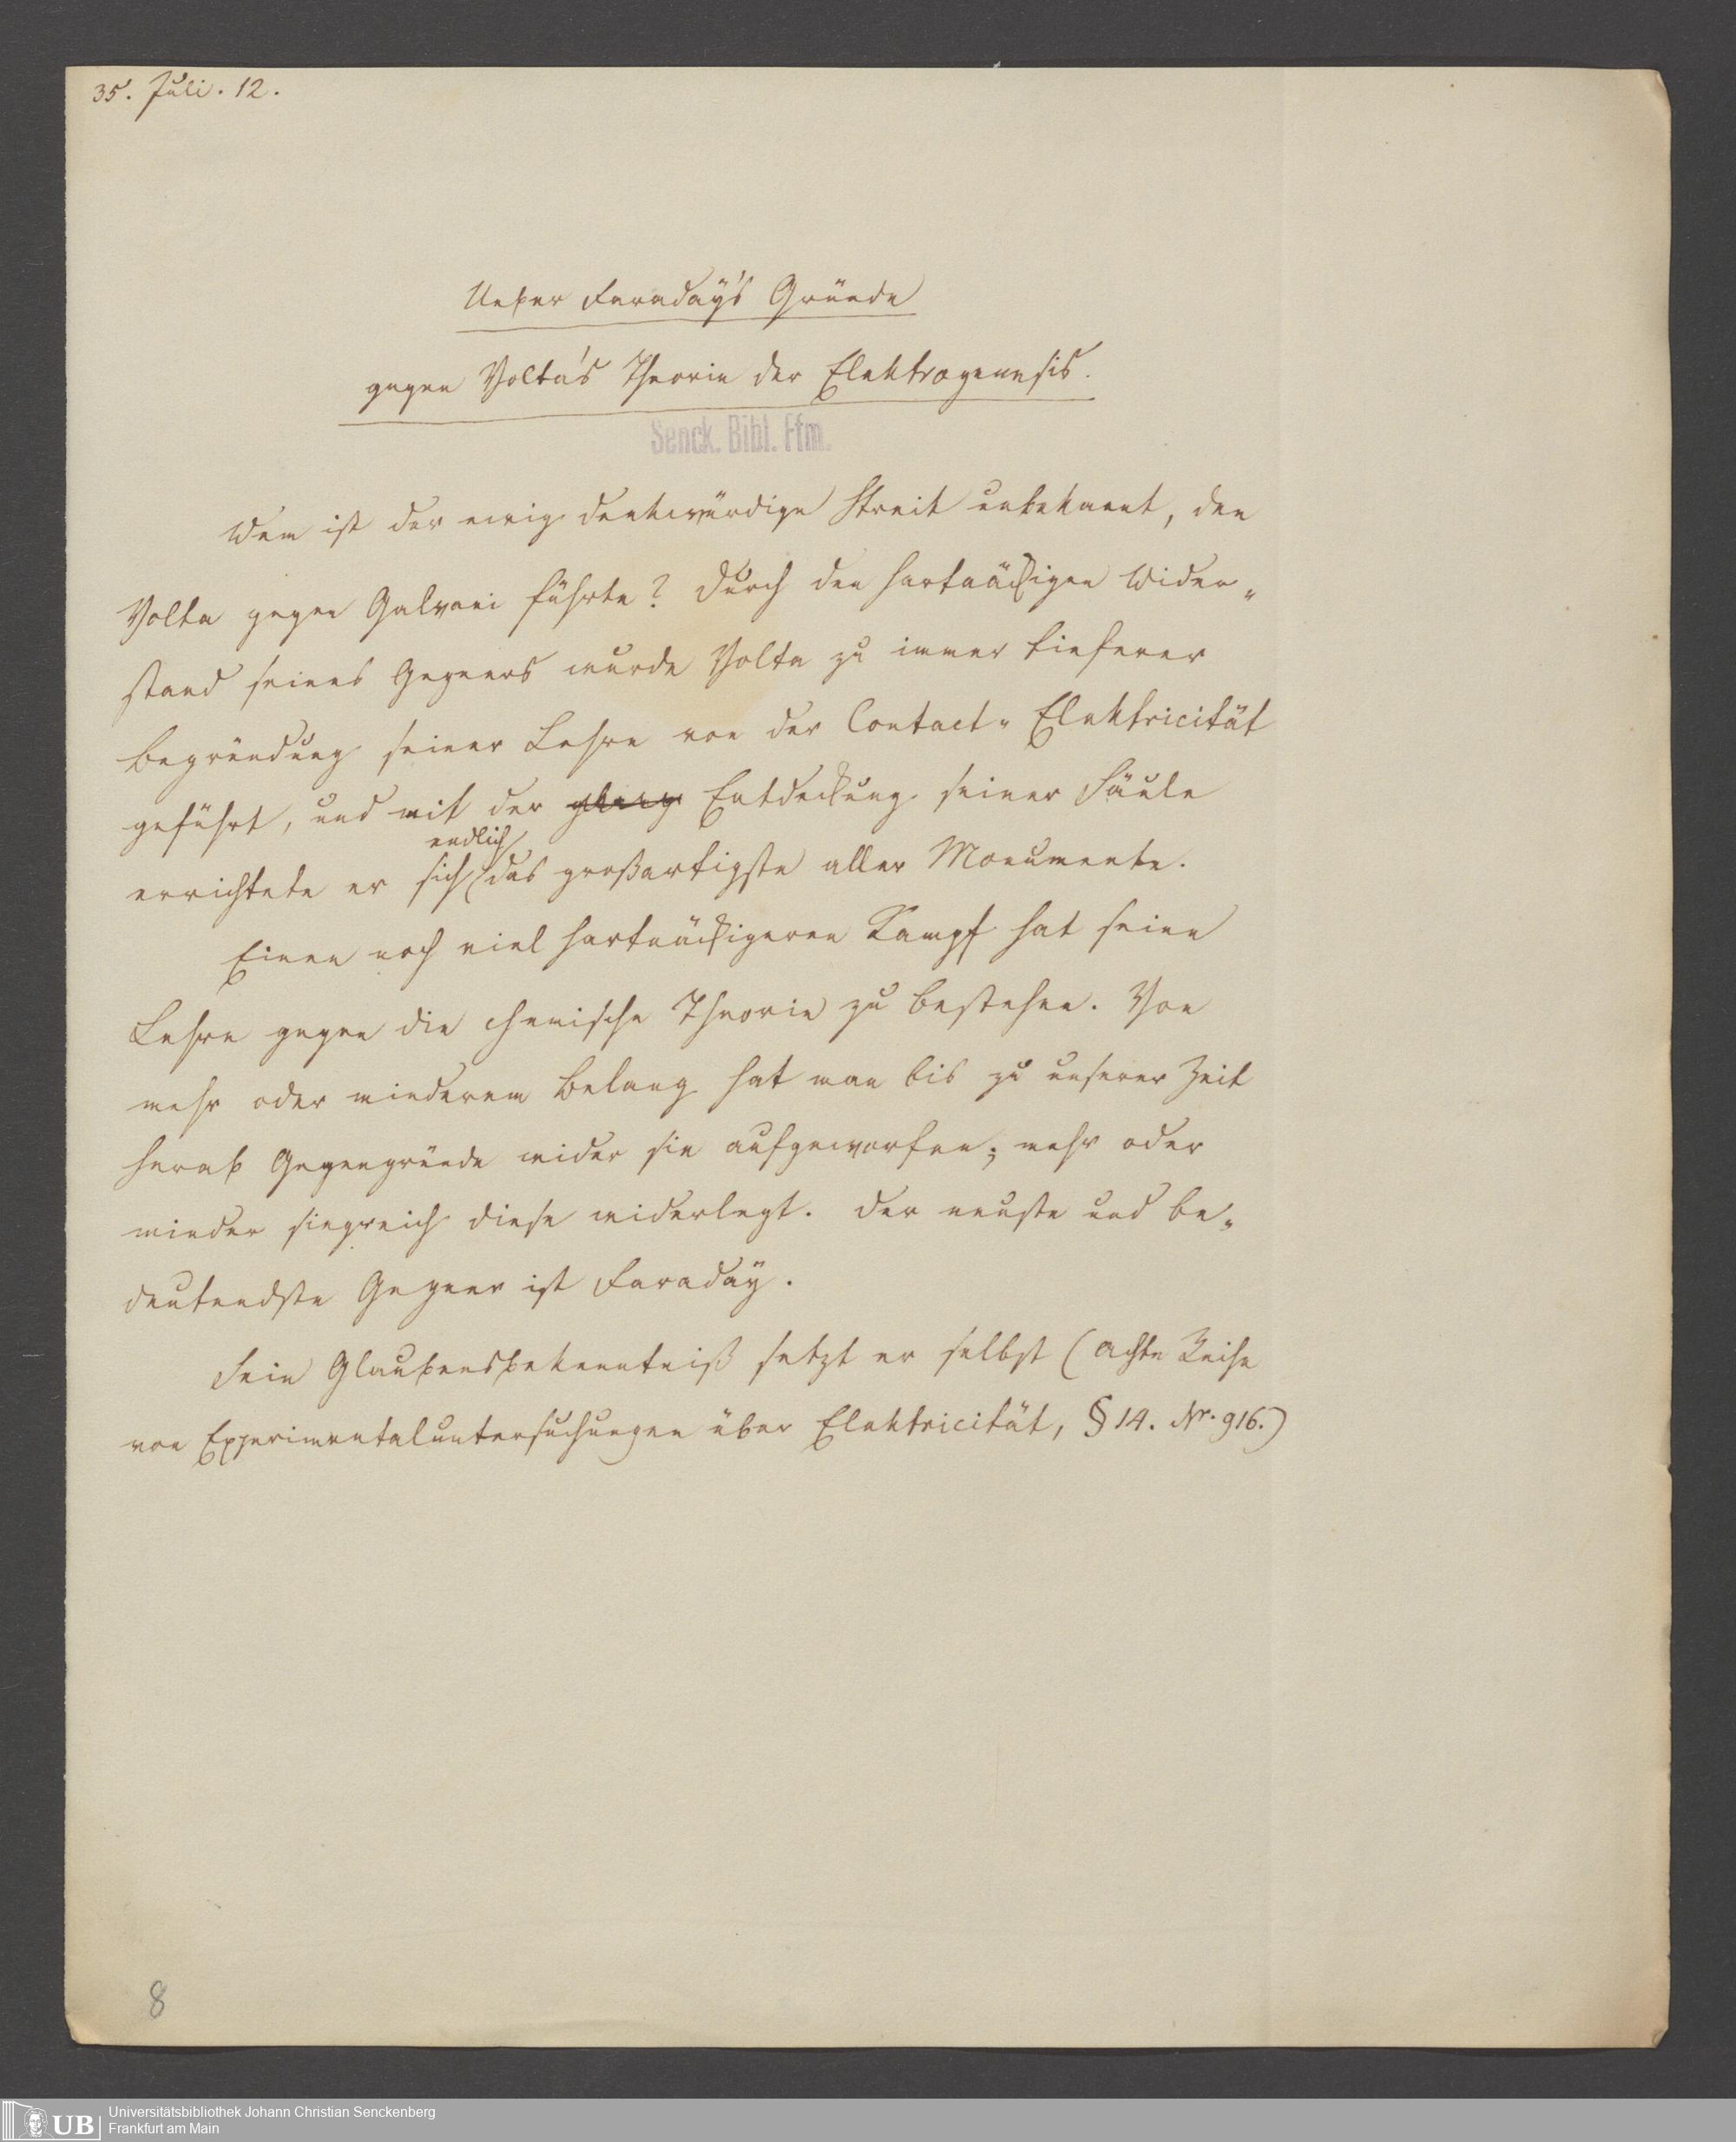 35. Juli. 12.
Ueber Faraday's Gründe
gegen Volta's Theorie der Elektrogenesis.
Senck. Bibl. Ffm.
Wem ist der ewig denkwürdige Streit unbekannt, den
Volta gegen Galvani führte? Durch den hartnäckigen Wider-
stand seines Gegners wurde Volta zu immer tieferer
Begründung seiner Lehre von der Contact-Elektricität
geführt, und mit der Entdeckung seiner Säule
endlich
errichtete er sich das großartigste aller Monumente.
Einen noch viel hartnäckigeren Kampf hat seine
Lehre gegen die chemische Theorie zu bestehen. Von
mehr oder minderem Belang hat man bis zu unserer Zeit
herab Gegengründe wider sie aufgeworfen; mehr oder
minder siegreich diese widerlegt. Der neuste und be-
deutendste Gegner ist Faraday.
Sein Glaubensbekenntniß setzt er selbst (Achte Reihe
von Experimentaluntersuchungen über Elektricität, § 14. Nr. 916.)
8
UB
Universitätsbibliothek Johann Christian Senckenberg
Frankfurt am Main